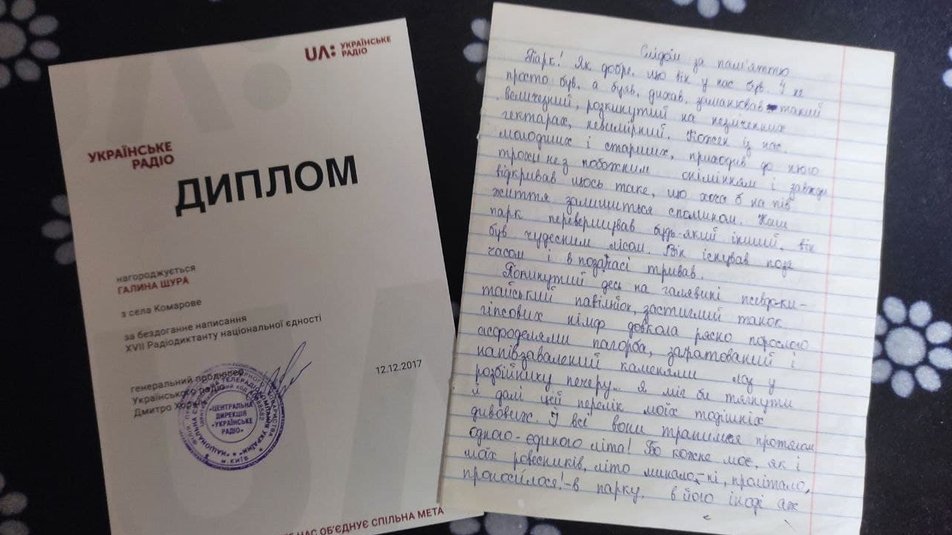 UA: УКРАЇНСЬКЕ
РАДІО
УКРАЇНСЬКЕ
РАДІО
ДИПЛОМ
нагороджується
ГАЛИНА ЩУРА
з села Комарове
за бездоганне написання
XVII Радіодиктанту національної єдності
генеральний продюсер
Українського радіо
Дмитро
12.12.2017
ЦЕНТРАЛЬНА
ДИРЕКЦІЯ
«УКРАЇНСЬКЕ
РАДІО»
м. КИЇВ
НАС ОБ'ЄДНУЄ СПІЛЬНА МЕТА
Слідом за пам'яттю
Парк! Як добре, що він у нас був. І не
просто був, а була, дихав, заманював такий
величезний, розкинутий на незліченних
гектарах, невимірний. Кожен із нас,
молодших і старших, приходив до нього
трохи не з побожним онімінням і завжди
відкривав щось таке, що хоча б на пів
життя залишиться спомином. Наш
парк перевершував будь-який інший, він
був чудесним лісом. Він існував поза
часом і в подачасі тривав.
Покинутий десь на галявині псевдо-ки-
тайський павільйон, застиглий танок
гіпсових німф довкола рясно порослого
асфоделями пагорба, загратований і
напівзавалений каменями лаз у
розбійницьку печеру... Я міг би тягнути
й далі цей перелік моїх тодішніх
дивовиж. І всі вони трапилися протягом
одного-єдиного літа! Бо кожне моє, як і
моїх ровесників, літо минало, ні, пролітало,
проносилося! - в парку, в його іноді аж